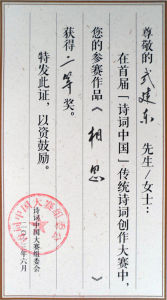 尊敬的 武建东 先生/女士:
在首届「诗词中国」传统诗词创作大赛中,
您的参赛作品《相思》
获得二等奖。
特发此证,以资鼓励。
诗词中国大赛组委会